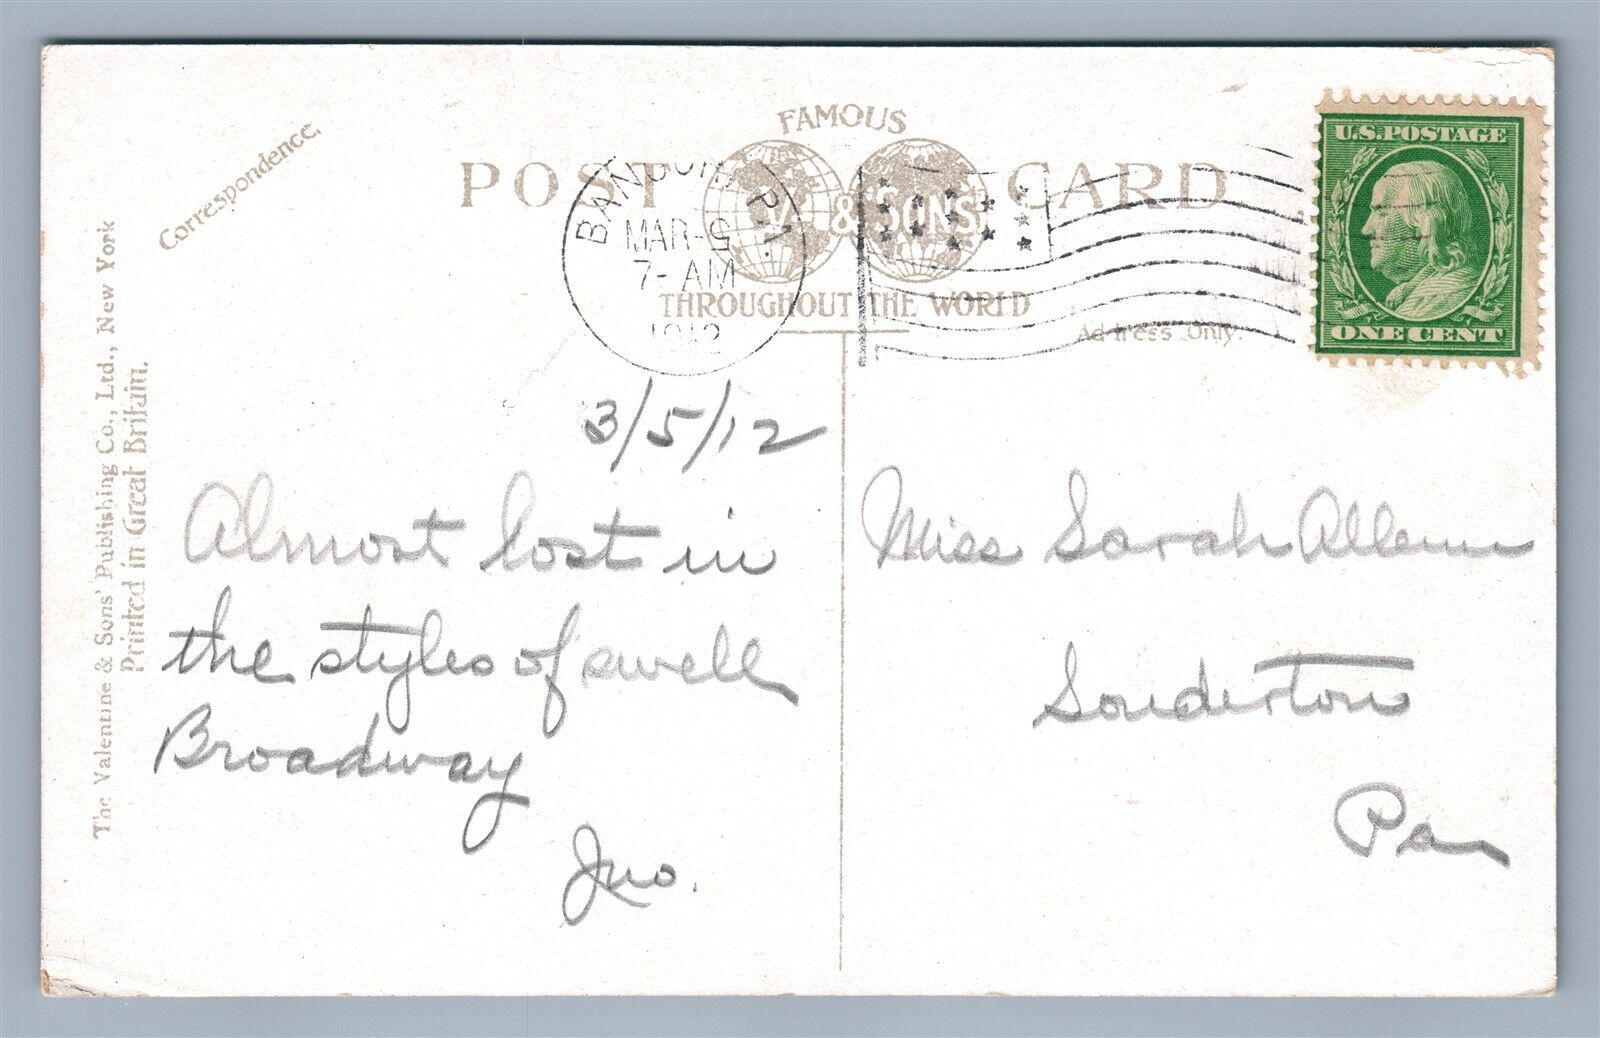 Correspondence.
FAMOUS
POST CARD
V. & SONS
THROUGHOUT THE WORLD
Address Only.
BANGOR PA.
MAR-5
7-AM
1912
U.S. POSTAGE
ONE CENT
The Valentine & Sons' Publishing Co., Ltd., New York
Printed in Great Britain.
3/5/12
Almost lost in
the styles of swell
Broadway
Jno.
Miss Sarah
Souderton
Pa